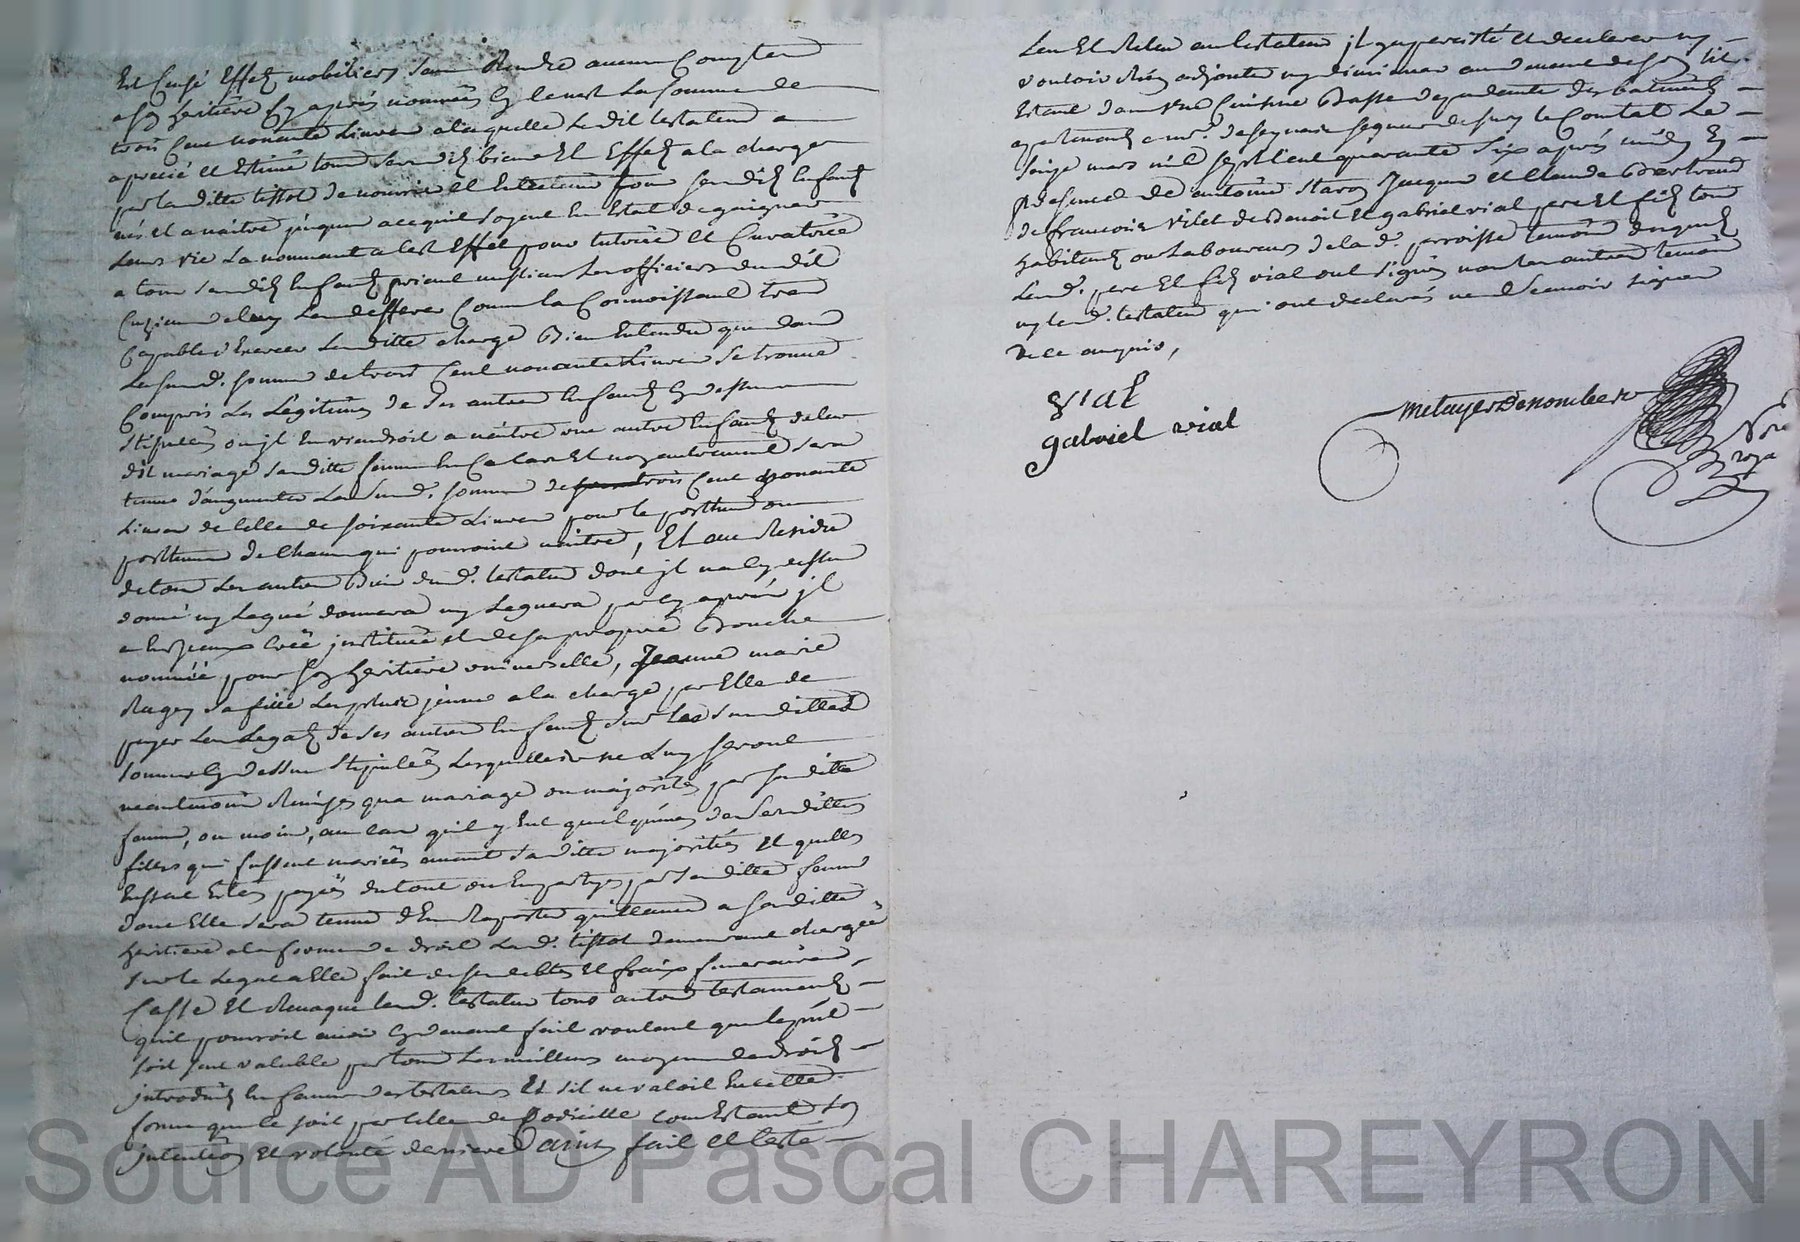 Et Cusé Effetz mobiliers sans Rendre aucun Compte
a ses heritiere Cy apres nommée Cy le nest La somme de
trois Cent nonante Livres a laquelle Ledit testateur a
aprecié et Estimé tous ses ditz biens Et Effetz a la charge
par laditte tissot de nourrir et Entretenir tous ses ditz Enfantz
nés et a naitre jusques a ce quil soyent En Estat de gaigner
Leurs vie La nommant a cest Effet pour tutrice et Curatrice
a tous ses ditz Enfantz priant messieurs Les officiers dudit
de luy Les defferer Comme la Connoissant tres
Capable d'Exercer Laditte charge Bien Entendu que dans
La susd. somme de trois Cent nonante Livres Se trouve
Compris Les Legitimes de Ses autres Enfantz Cy dessus
stipulées ou jl En viendroit a naitre un autre Enfantz de leur
dit mariage Saditte femme En Ce Cas Et non autrement Sera
tenue d'augmenter La Susd. somme de trois Cent nonante
Livres de Celle de soixante Livres pour le posthume ou
posthume de Chacun qui pourroint naitre, Et au Residu
de tous Les autres Bien dud. testateur dont jl na Cy dessus
donné ny Legué donnera ny Leguera par Cy apres jl
a Creé jnstitué et de sa propre Bouche
nommée pour Son heritiere universelle, Jeanne marie
Ragey Sa fille La plus jeune a la charge par Elle de
payer Les Legatz de Ses autres Enfantz Sur Les Susdittes
Sommes Cy dessus stipulées Lesquelles ne Luy Seront
neantmoins Remises qua mariage ou majorité, par Saditte
femme, ou moins, au Cas quil y Eut quelquines de Ses dittes
filles qui fussent mariées avant Saditte majorité Et quelles
Eussent Estés payées du tout ou En partye, par Saditte femme
dont Elle Sera tenue d'En Raporter quittance a Saditte
heritiere a la forme de droit Lad. tissot demeurant chargée
Sur le Legat a Elle fait de ses debtes et fraix funeraires,
Casse Et Revoque Led. testateur tous autres testamentz
quil pourroit avoir Cy devant fait voulant que le pnt
soit seul valable par tous Les meilleurs moyens de droit
jntroduitz En faveur des testateurs Et Sil ne valoit En cette
forme que le soit par Celle de Codicille comme Estant Sa
jntention Et volonté derniere Ainsy fait Et testé
Leu Et Releu au testateur jl y a percisté et declarer ny
vouloir Rien adjouter ny diminuer au devant de Son lit
Estant dans une Cuisine Basse dependente des batiments
apartenantz a mr. de seigneur de Sury le Comtal Le
seize mars mil sept Cent quarante Six après midy En
presence de antoine Jacques et Claude Bertrand
de francois vilet de Benoit Et gabriel vial pere Et fils tous
habitants ou Laboureurs de lad. parroisse temoins desquels
Lesd. pere Et fils vial ont Signés non les autres temoins
ny led. testateur qui ont declarés ne Scavoir signer
de ce enquis,
vial
gabriel vial
metayer Denombere
Nore
roya
Source AD Pascal CHAREYRON